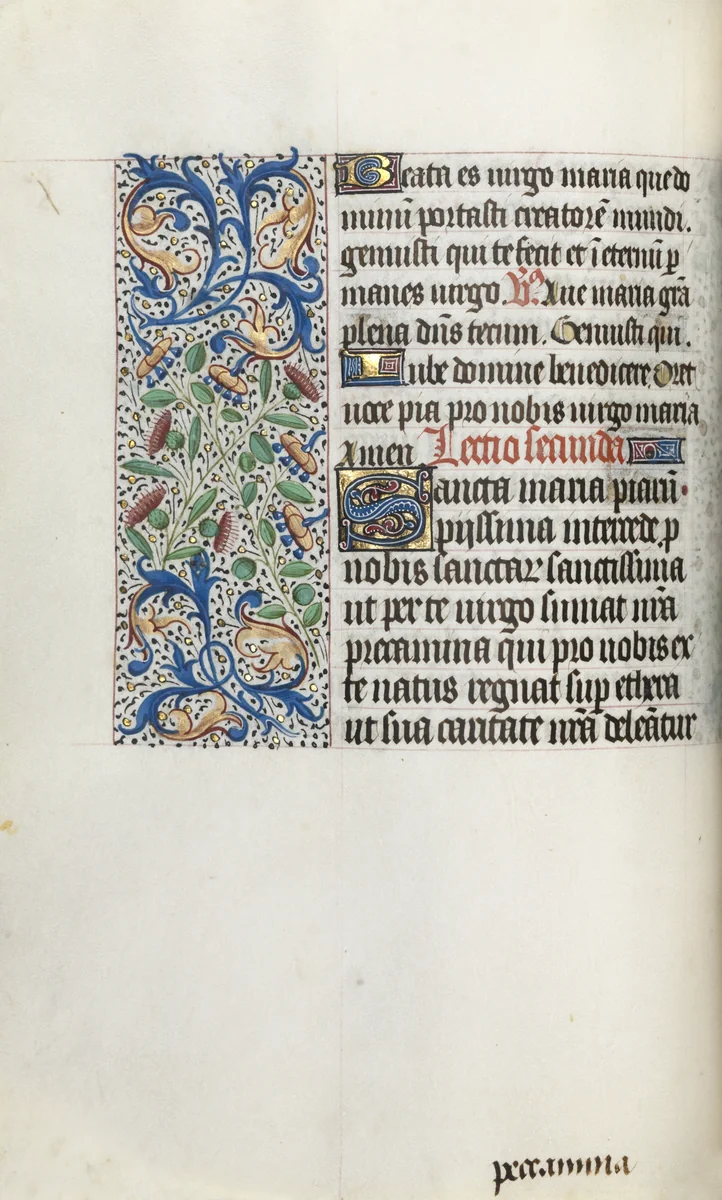 Beata es uirgo maria que do
minū portasti creatorē mundi.
genuisti qui te fecit et ī eternū p
manes uirgo. Vs. Aue maria grā
plena dn̄s tecum. Genuisti qui.
Iube domine benedicere Oret
uoce pia pro nobis uirgo maria
Amen Lectio secunda
Sancta maria piarū
piissima intercede p
nobis sanctar sanctissima
ut per te uirgo sumat nr̄a
precamina qui pro nobis ex
te natus regnat sup ethera
ut sua caritate nr̄a deleātur
peccamina